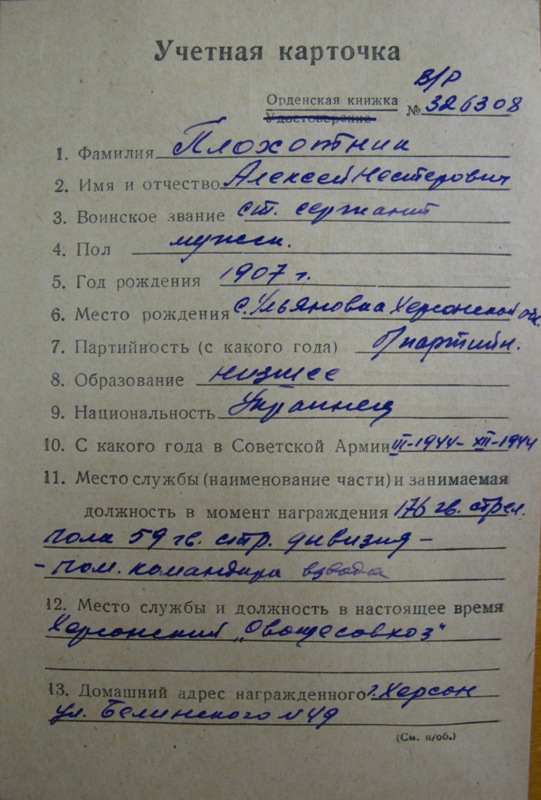 Учетная карточка
В/Р
Орденская книжка
Удостоверение № 326308
1. Фамилия Плохотник
2. Имя и отчество Алексей Нестерович
3. Воинское звание ст. сержант
4. Пол мужск.
5. Год рождения 1907 г.
6. Место рождения с. Ульяновка Херсонской обл.
7. Партийность (с какого года) б/партийн.
8. Образование низшее
9. Национальность Украинец
10. С какого года в Советской Армии III-1944 - XII-1944
11. Место службы (наименование части) и занимаемая
должность в момент награждения 176 гв. стрел.
полк 59 гв. стр. дивизия -
- пом. командира взвода
12. Место службы и должность в настоящее время
Херсонский „Овощесовхоз"
13. Домашний адрес награжденного г. Херсон
ул. Белинского № 49
(См. н/об.)